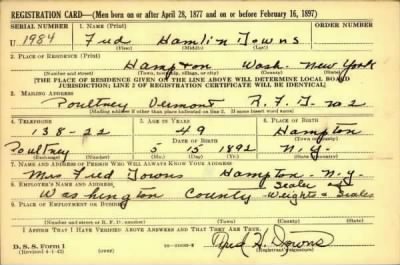 REGISTRATION CARD—(Men born on or after April 28, 1877 and on or before February 16, 1897)
SERIAL NUMBER
1. NAME (Print)
ORDER NUMBER
U 1984
Fred Hamlin Towns
(First) (Middle) (Last)
2. PLACE OF RESIDENCE (Print)
Hampton Wash. New York
(Number and street) (Town, township, village, or city) (County) (State)
[THE PLACE OF RESIDENCE GIVEN ON THE LINE ABOVE WILL DETERMINE LOCAL BOARD
JURISDICTION; LINE 2 OF REGISTRATION CERTIFICATE WILL BE IDENTICAL]
3. MAILING ADDRESS
Poultney Vermont R.F.D. no 2
[Mailing address if other than place indicated on line 2. If same insert word same]
4. TELEPHONE
5. AGE IN YEARS
6. PLACE OF BIRTH
138-22
49
Hampton
DATE OF BIRTH
(Town or county)
Poultney
5 15 1892
N.Y.
(Exchange) (Number)
(Mo.) (Day) (Yr.)
(State or country)
7. NAME AND ADDRESS OF PERSON WHO WILL ALWAYS KNOW YOUR ADDRESS
Mrs Fred Towns Hampton N.Y.
8. EMPLOYER'S NAME AND ADDRESS
Sealer of
Washington County Weights & Scales
9. PLACE OF EMPLOYMENT OR BUSINESS
(Number and street or R. F. D. number) (Town) (County) (State)
I AFFIRM THAT I HAVE VERIFIED ABOVE ANSWERS AND THAT THEY ARE TRUE.
D. S. S. Form 1
(Revised 4-1-42) (over)
Fred H. Downs
(Registrant's signature)